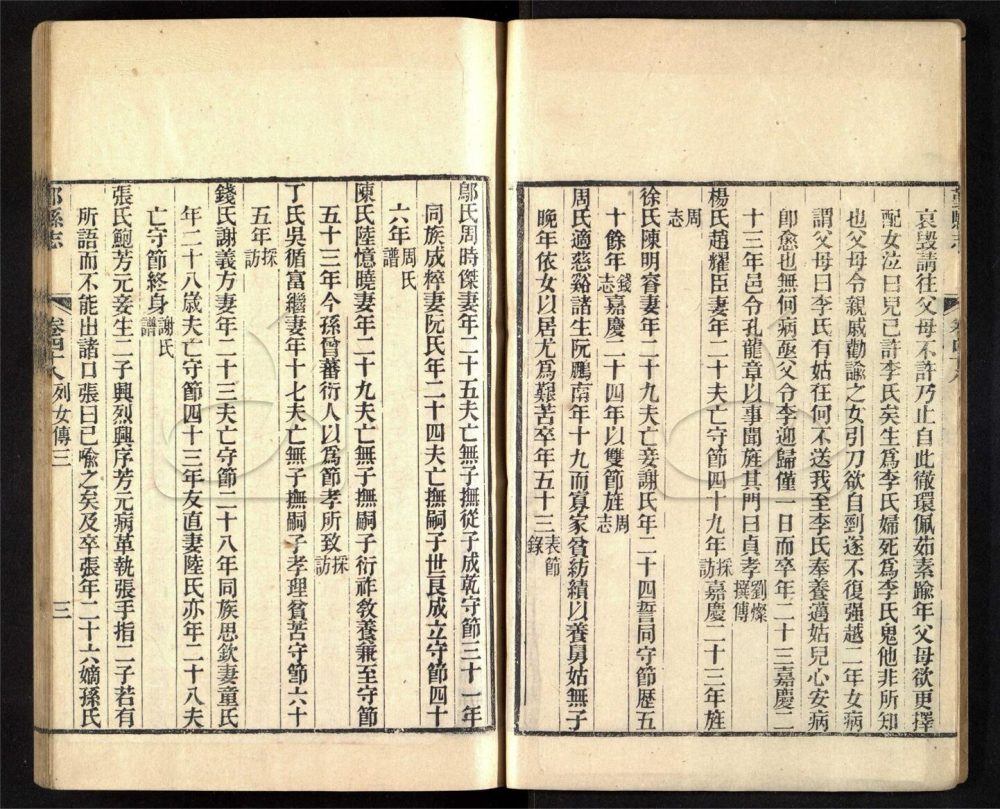 哀毀請往父母不許乃止自此徹環佩茹素踰年父母欲更擇
配女泣曰兒已許李氏矣生爲李氏婦死爲李氏鬼他非所知
也父母令親戚勸諭之女引刀欲自剄遂不復强越二年女病
謂父母曰李氏有姑在何不送我至李氏奉養邁姑兒心安病
卽愈也無何病亟父令李迎歸僅一日而卒年二十三嘉慶二
十三年邑令孔龍章以事聞旌其門曰貞孝劉燦撰傳
楊氏趙耀臣妻年二十夫亡守節四十九年採訪嘉慶二十三年旌
周志
徐氏陳明睿妻年二十九夫亡妾謝氏年二十四誓同守節歷五
十餘年錢志嘉慶二十四年以雙節旌周志
周氏適慈谿諸生阮鵬南年十九而寡家貧紡績以養舅姑無子
晚年依女以居尤爲艱苦卒年五十三表節錄
鄔氏周時傑妻年二十五夫亡無子撫從子成乾守節三十一年
同族成粹妻阮氏年二十四夫亡撫嗣子世良成立守節四十
六年周氏譜
陳氏陸憶曉妻年二十九夫亡無子撫嗣子衍祚敎養兼至守節
五十三年今孫曾蕃衍人以爲節孝所致採訪
丁氏吳循富繼妻年十七夫亡無子撫嗣子孝理貧苦守節六十
五年採訪
錢氏謝義方妻年二十三夫亡守節二十八年同族思欽妻童氏
年二十八歲夫亡守節四十三年友直妻陸氏亦年二十八夫
亡守節終身謝氏譜
張氏鮑芳元妾生二子興烈興序芳元病革執張手指二子若有
所語而不能出諸口張曰已喩之矣及卒張年二十六嫡孫氏
縣志 卷四十八 列女傳三 三